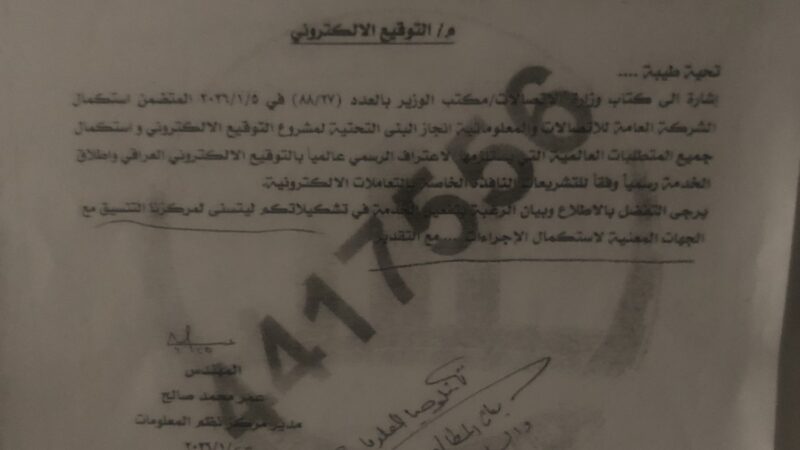 م/ التوقيع الالكتروني
تحية طيبة ....
إشارة الى كتاب وزارة الاتصالات/مكتب الوزير بالعدد (٨٨/٢٧) في ٢٠٢٦/١/٥ المتضمن استكمال
الشركة العامة للاتصالات والمعلوماتية انجاز البنى التحتية لمشروع التوقيع الالكتروني و استكمال
جميع المتطلبات العالمية التي يستلزمها الاعتراف الرسمي عالمياً بالتوقيع الالكتروني العراقي واطلاق
الخدمة رسمياً وفقاً للتشريعات النافذة الخاصة بالتعاملات الالكترونية.
يرجى التفضل بالاطلاع وبيان الرغبة بتفعيل الخدمة في تشكيلاتكم ليتسنى لمركزنا التنسيق مع
الجهات المعنية لاستكمال الإجراءات .... مع التقدير
4417556
المهندس
عمر محمد صالح
مدير مركز نظم المعلومات